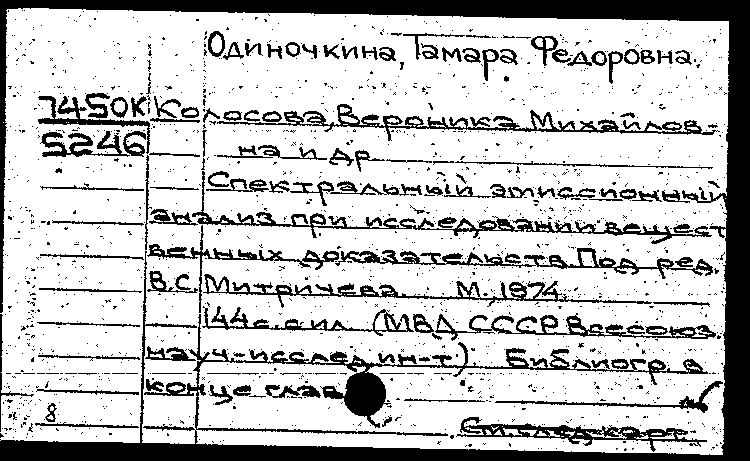 Одиночкина, Тамара Федоровна.
74-50К Колосова, Вероника Михайлов-
5246
на и др
Спектральный эмиссионный
анализ при исследовании вещест
венных доказательств. Под ред.
В.С. Митричева М., 1974.
144 с. с ил. (МВД СССР Всесоюз.
науч-исслед. ин-т) Библиогр. в
конце глав
8
См. след. карт.